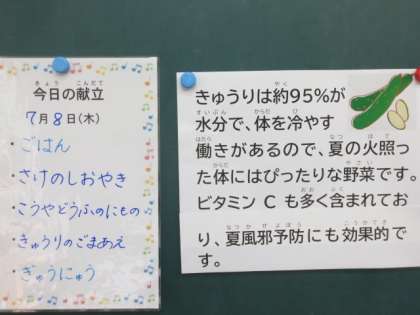 今日の献立
7月8日(木)
・ごはん
・さけのしおやき
・こうやどうふのにもの
・きゅうりのごまあえ
・ぎゅうにゅう
きゅうりは約95%が
水分で、体を冷やす
働きがあるので、夏の火照っ
た体にはぴったりな野菜です。
ビタミン C も多く含まれてお
り、夏風邪予防にも効果的で
す。